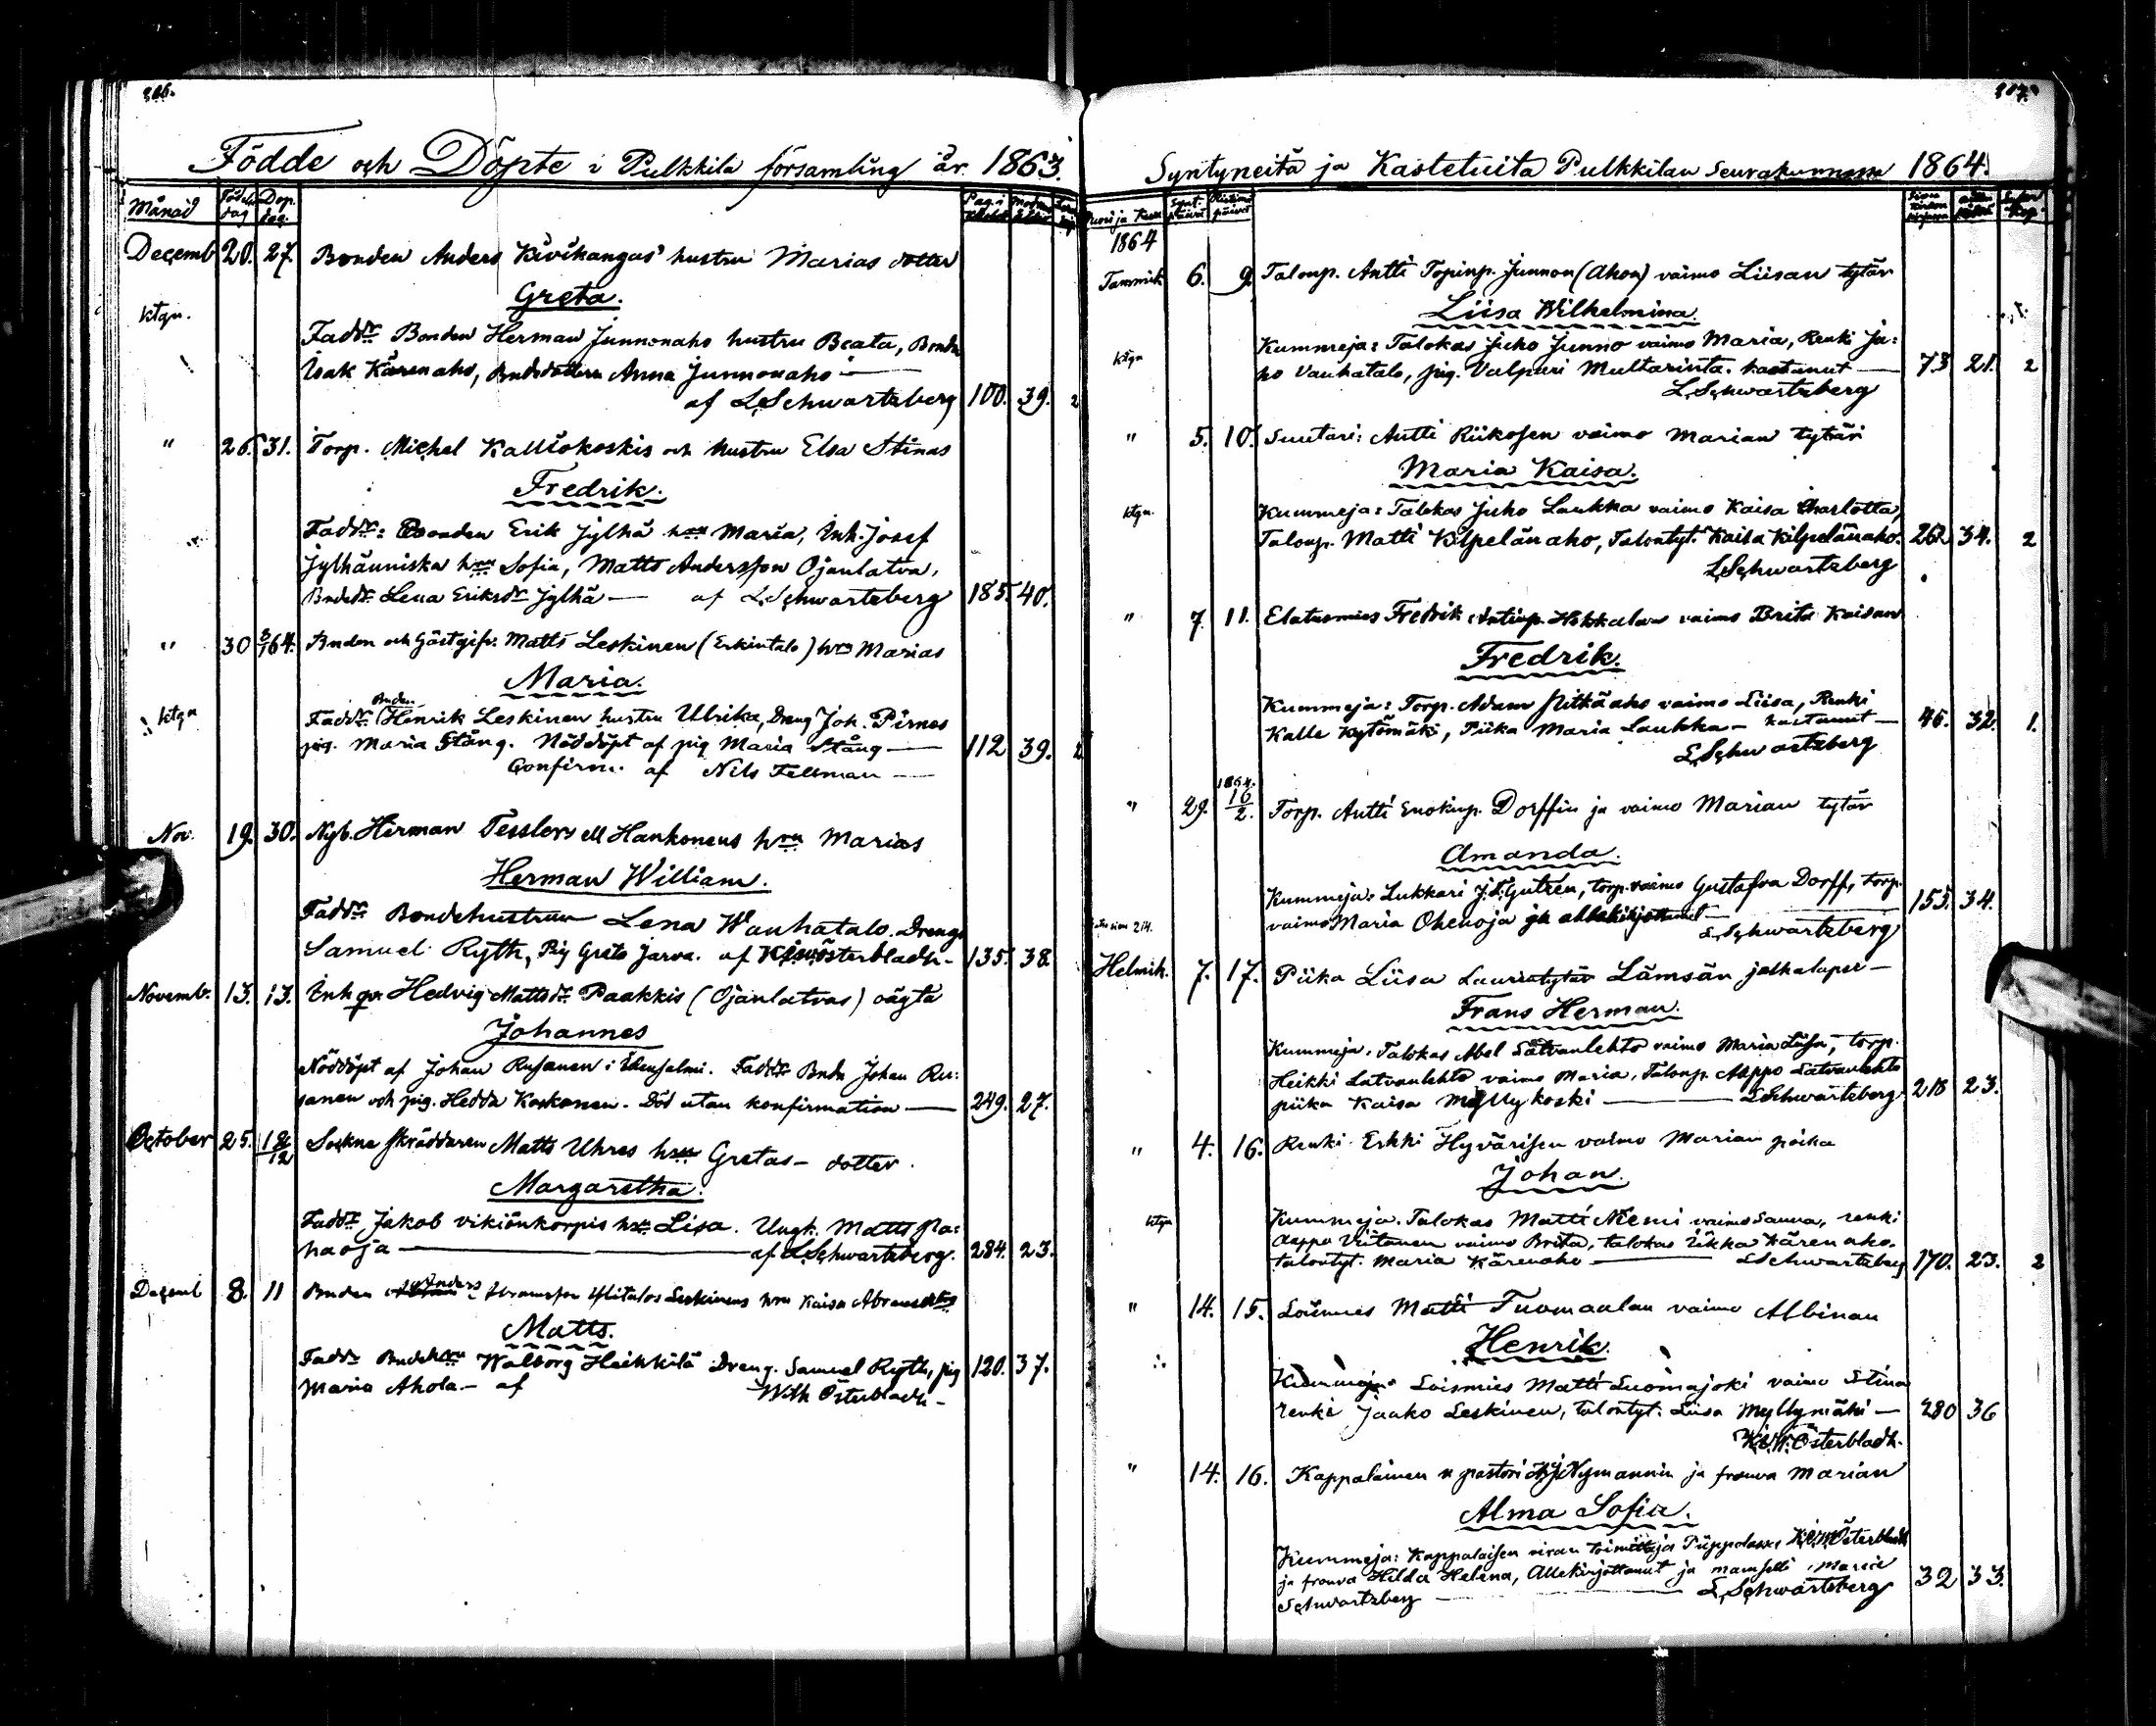 206.
Födde och Döpte i Pulkkila församling år 1863.
Månad Födelse dag Döp. dag.
Decemb 20. 27. Bonden Anders Kivikangas' hustru Marias dotter
Greta.
ktgn.
Faddr Bonden Herman Junnonaho hustru Beata, Bondn
Isak Kärenaho, Bndedottern Anna Junnonaho —
af L, Schwartzberg 100. 39. 2
" 26. 31. Torp. Michel Kalliokoskis och hustru Elsa Stinas
Fredrik.
Faddr: Bonden Erik Jylhä hru Maria, Inh. Josef
Jylhänniska hru Sofia, Matts Andersson Ojanlatva,
Bndedr Lena Eriksdr Jylhä — af L, Schwartzberg 185. 40.
" 30 3/1 64. Bnden och Gästgifv. Matts Leskinen (Erkintalo) hru Marias
Maria.
ktgn
Bnden
Faddr Henrik Leskinen hustru Ulrika, Dreng Joh. Pirnes
pig. Maria Stång. Nöddöpt af pig Maria Stång — 112 39. 2
Confirm. af Nils Fellman —
Nov. 19. 30. Nyb. Herman Tesslers ell Hankonens hru Marias
Herman William.
Faddr Bondehustrun Lena Wanhatalo. Dreng
Samuel Ryth, Pig Greta Jarva. af Österbladh - 135. 38
Novemb. 13. 13. Inh qv. Hedvig Mattsdr Paakkis (Ojanlatvas) oägta
Johannes
Nöddöpt af Johan Rusanen i Idensalmi. Faddr Bndn Johan Ru:
sanen och pig. Hedda Koskonen. Död utan konfirmation — 249. 27.
October 25. 12/12 Sockne skräddaren Matts Uhres hru Gretas - dotter.
Margaretha.
Faddr Jakob vikiönkorpis hru Lisa. Ungk. Matts Na:
haoja — af L, Schwartzberg. 284. 23.
Decemb 8. 11 Bnden Anders Abramsson Leskinens hru Kaisa Abramsdtrs
Matts.
Faddr Bndehru Walborg Heikkilä Dreng. Samuel Ryth, pig 120. 37.
Maria Ahola - af Wilh Österbladh -
207.
Syntyneitä ja Kastetuita Pulkkilan Seurakunnassa 1864.
Vuosi ja Kuu Synt. päivä Ristimä päivä
1864
Tammik 6. 9. Talonp. Antti Topinp. Junnon (Ahon) vaimo Liisan tytär
Liisa Wilhelmina.
ktgn
Kummeja: Talokas Juho Junno vaimo Maria, Renki Ju:
ho Vanhatalo, pig. Valpuri Multarinta. kastanut — 73 21. 2
L, Schwartzberg
" 5. 10. Suutari: Antti Riikosen vaimo Marian tytär
Maria Kaisa.
ktgn.
Kummeja: Talokas Juho Laukka vaimo Kaisa Charlotta,
Talonp. Matti Kilpelänaho, Talontyt. Kaisa Kilpelänaho. 262 34. 2
L, Schwartzberg
" 7. 11. Elatusmies Fredrik Antinp. Hokkalan vaimo Brita Kaisan
Fredrik.
Kummeja: Torp. Adam Pitkäaho vaimo Liisa, Renki
Kalle Kytömäki, Piika Maria Laukka - kastanut — 46. 32. 1.
L, Schwartzberg
" 29. 1864. 16/2. Torp. Antti Enokinp. Dorffin ja vaimo Marian tytär
Amanda.
Kummeja: Lukkari J. F. Gutzén, torp. vaimo Gustafva Dorff, torp.
vaimo Maria Ohenoja ja allekirjottanut — 155. 34.
L, Schwartzberg
Helmik. 7. 17. Piika Liisa Laurintytär Lämsän jalkalapsi —
Frans Herman.
Kummeja: Talokas Abel Latvanlehto vaimo Maria Liisa, torp.
Heikki Latvanlehto vaimo Maria, Talonp. Aappo Latvanlehto
piika Kaisa Myllykoski — L Schwartzberg 218 23.
" 4. 16. Renki Erkki Hyvärisen vaimo Marian poika
Johan.
ktgn
Kummeja. Talokas Matti Niemi vaimo Sanna, renki
Aappo Viitanen vaimo Brita, talokas Iikka Kärenaho,
talontyt. Maria Kärenaho — L Schwartzberg 170. 23. 2
" 14. 15. Loismies Matti Tuomaalan vaimo Albinan
Henrik.
Kummeja: Loismies Matti Luomajoki vaimo Stina
renki Jaako Leskinen, talontyt. Liisa Myllymäki — 280 36
K. W. Österbladh.
" 14. 16. Kappalainen v pastori Nymannin ja frouva Marian
Alma Sofia.
Kummeja: Kappalaisen viran toimittaja Piippolassa K. W. Österbladh
ja frouva Hilda Helena, Allekirjottanut ja mamselli Maria
Schwartzberg — L, Schwartzberg 32 33.